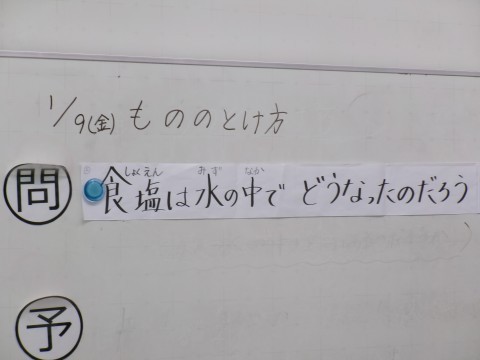 1/9(金) もののとけ方
問
しょくえん みず なか
食塩は水の中で どうなったのだろう
予